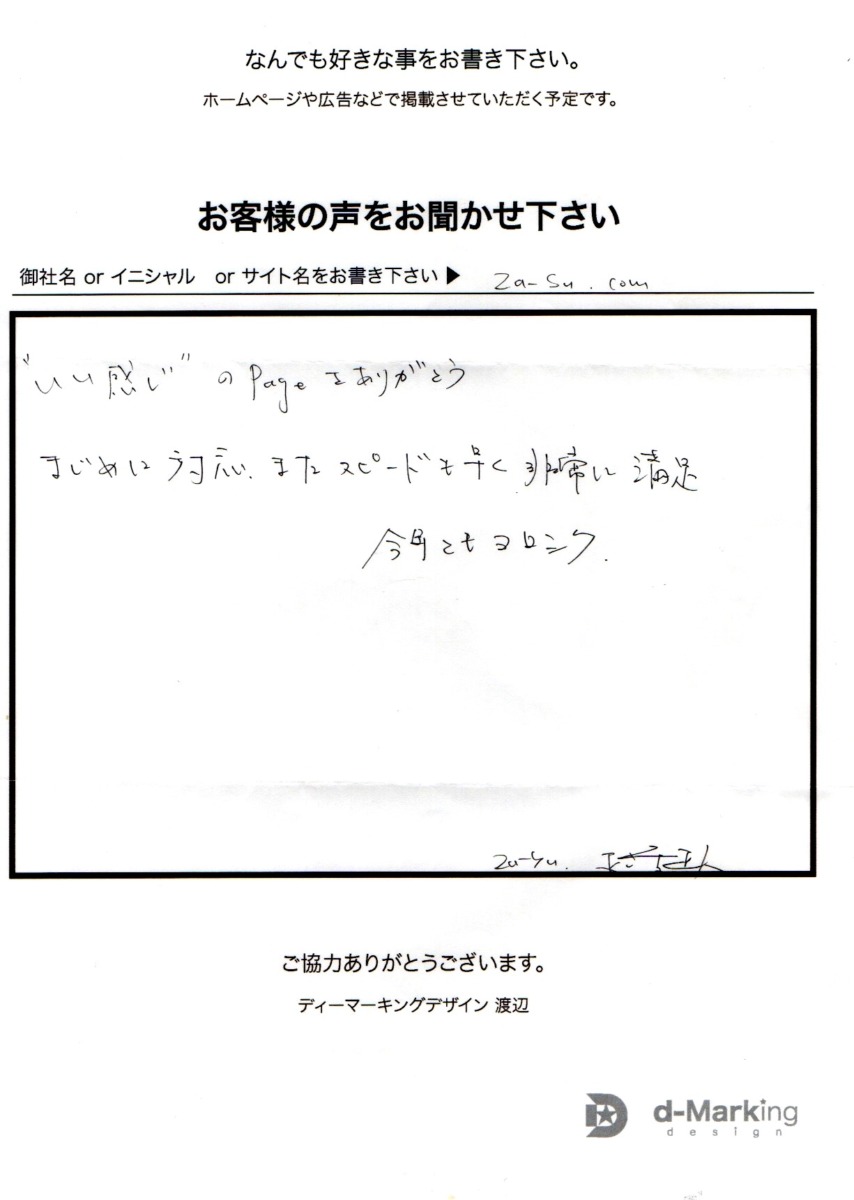 なんでも好きな事をお書き下さい。
ホームページや広告などで掲載させていただく予定です。
お客様の声をお聞かせ下さい
御社名 or イニシャル or サイト名をお書き下さい▶ za-su.com
"いい感じ" の Page をありがとう
まじめに対応、またスピードも早く非常に満足
今年ともヨロシク.
za-su.
ご協力ありがとうございます。
ディーマーキングデザイン 渡辺
d-Marking
design